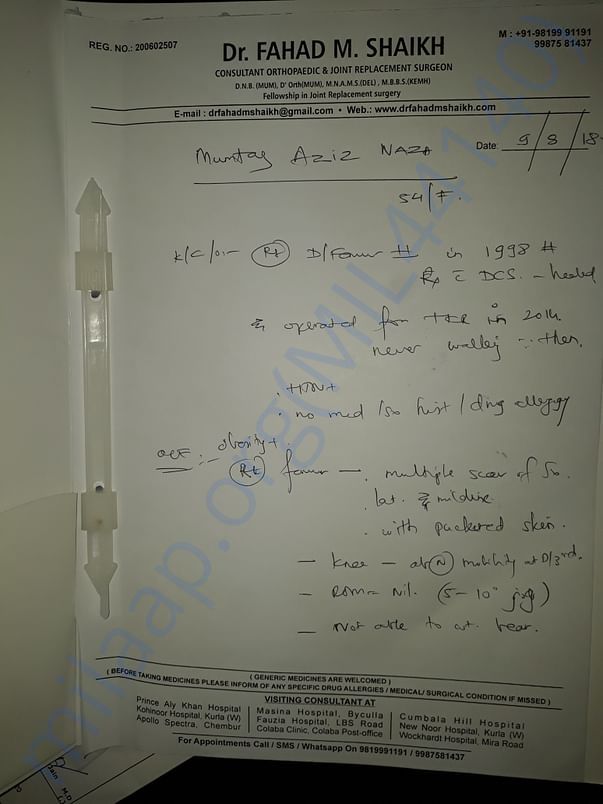 REG. NO.: 200602507
M : +91-98199 91191
99875 81437
Dr. FAHAD M. SHAIKH
CONSULTANT ORTHOPAEDIC & JOINT REPLACEMENT SURGEON
D.N.B. (MUM), D' Orth(MUM), M.N.A.M.S.(DEL) , M.B.B.S.(KEMH)
Fellowship in Joint Replacement surgery
E-mail : drfahadmshaikh@gmail.com • Web.: www.drfahadmshaikh.com
Date: 9/8/18
Mumtaz Aziz
54/F.
K/C/O:- Rt D/Femur # in 1998
Rx c DCS. - healed
operated for TKR in 2014
never walking then.
. HTN +
. no med / Sx hist / drug allergy
O/E :- obesity +
Rt femur — . multiple scar of Sx.
. lat. & midline
. with puckered skin.
— Knee — ab(N) mobility at D/3rd.
— ROM = Nil. (5-10° jog)
— Not able to wt. bear.
( GENERIC MEDICINES ARE WELCOMED )
( BEFORE TAKING MEDICINES PLEASE INFORM OF ANY SPECIFIC DRUG ALLERGIES / MEDICAL/ SURGICAL CONDITION IF MISSED )
VISITING CONSULTANT AT
Prince Aly Khan Hospital
Kohinoor Hospital, Kurla (W)
Apollo Spectra, Chembur
Masina Hospital, Byculla
Fauzia Hospital, LBS Road
Colaba Clinic, Colaba Post-office
Cumbala Hill Hospital
New Noor Hospital, Kurla (W)
Wockhardt Hospital, Mira Road
For Appointments Call / SMS / Whatsapp On 9819991191 / 9987581437
milaap.org(MIL44140)
Jain M.D